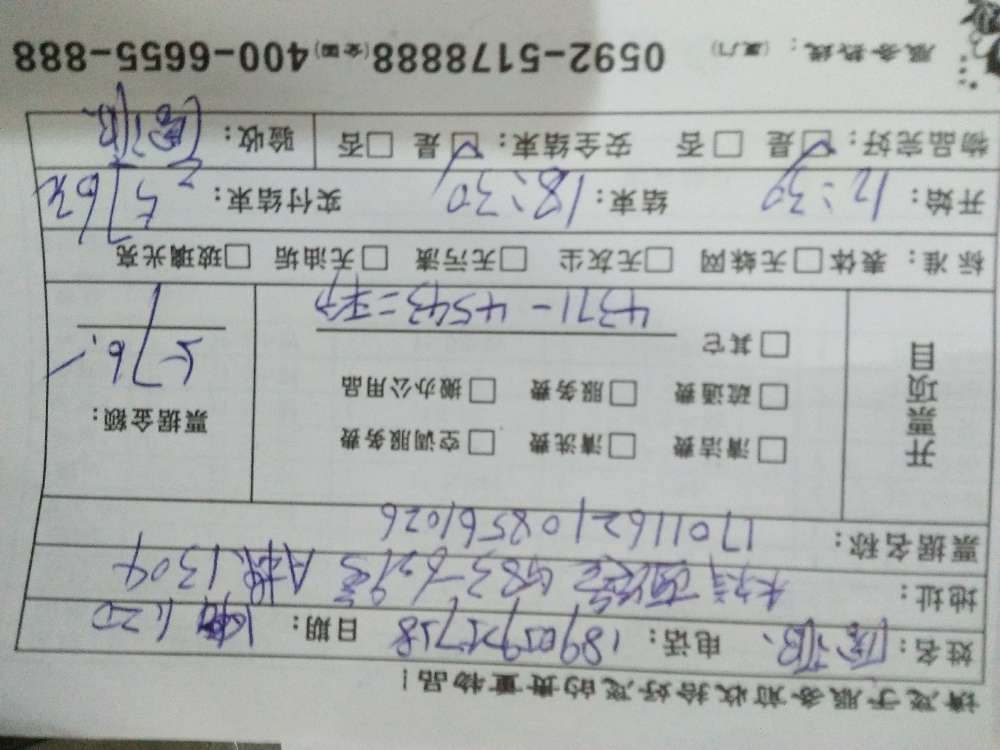 请您于服务前收拾好您的贵重物品！
姓名： 电话： 18905925718 日期： 1.20
地址： 583-629号 A栋1304
票据名称： 170116210856 1026
开票项目 □清洁费 □清洗费 □空调服务费 票据金额：
□疏通费 □服务费 □搬办公用品 576.
□其它 4371-4543=
标准： 表体□无蛛网 □无灰尘 □无污渍 □无油垢 □玻璃光亮
开始： 12:30 结束： 18:30 实付结束： 576元
物品完好： ☑是 □否 安全结束： ☑是 □否 验收：
服务热线： (厦门) 0592-5178888 (全国) 400-6655-888